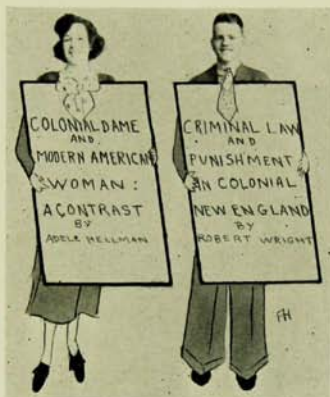 COLONIAL DAME
AND
MODERN AMERICAN
WOMAN:
A CONTRAST
BY
ADELE HELLMAN
CRIMINAL LAW
AND
PUNISHMENT
IN COLONIAL
NEW ENGLAND
BY
ROBERT WRIGHT
FH